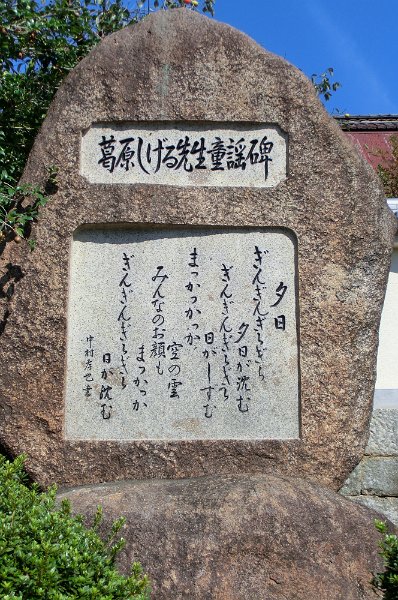 葛原しげる先生童謡碑
夕日
ぎんぎんぎらぎら
夕日が沈む
ぎんぎんぎらぎら
日がしずむ
まっかっかっか
空の雲
みんなのお顔も
まっかっか
ぎんぎんぎらぎら
日が沈む
中村孝也書